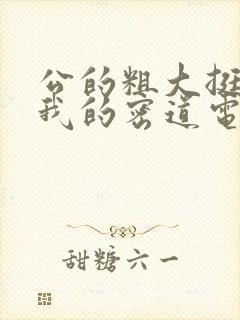 公的粗大挺
我的密道电
甜糖六一